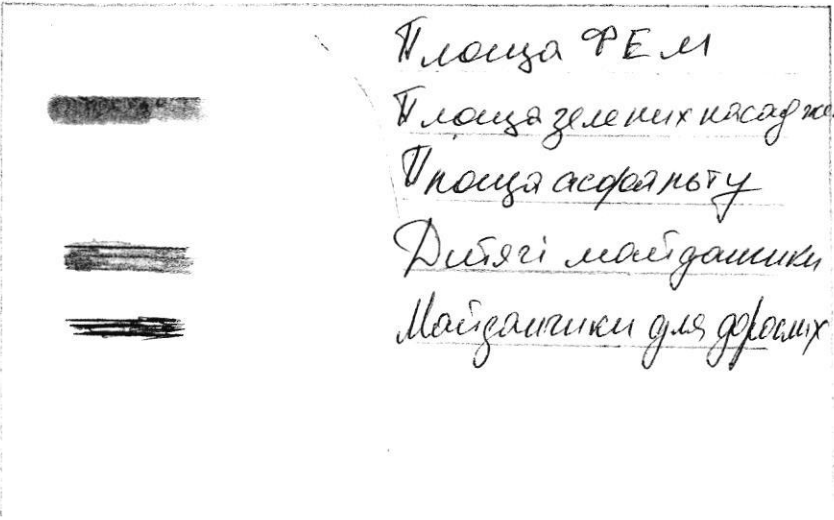 Площа ФЕМ
Площа зелених насадже
Площа асфальту
Дитячі майданчики
Майданчики для дорослих